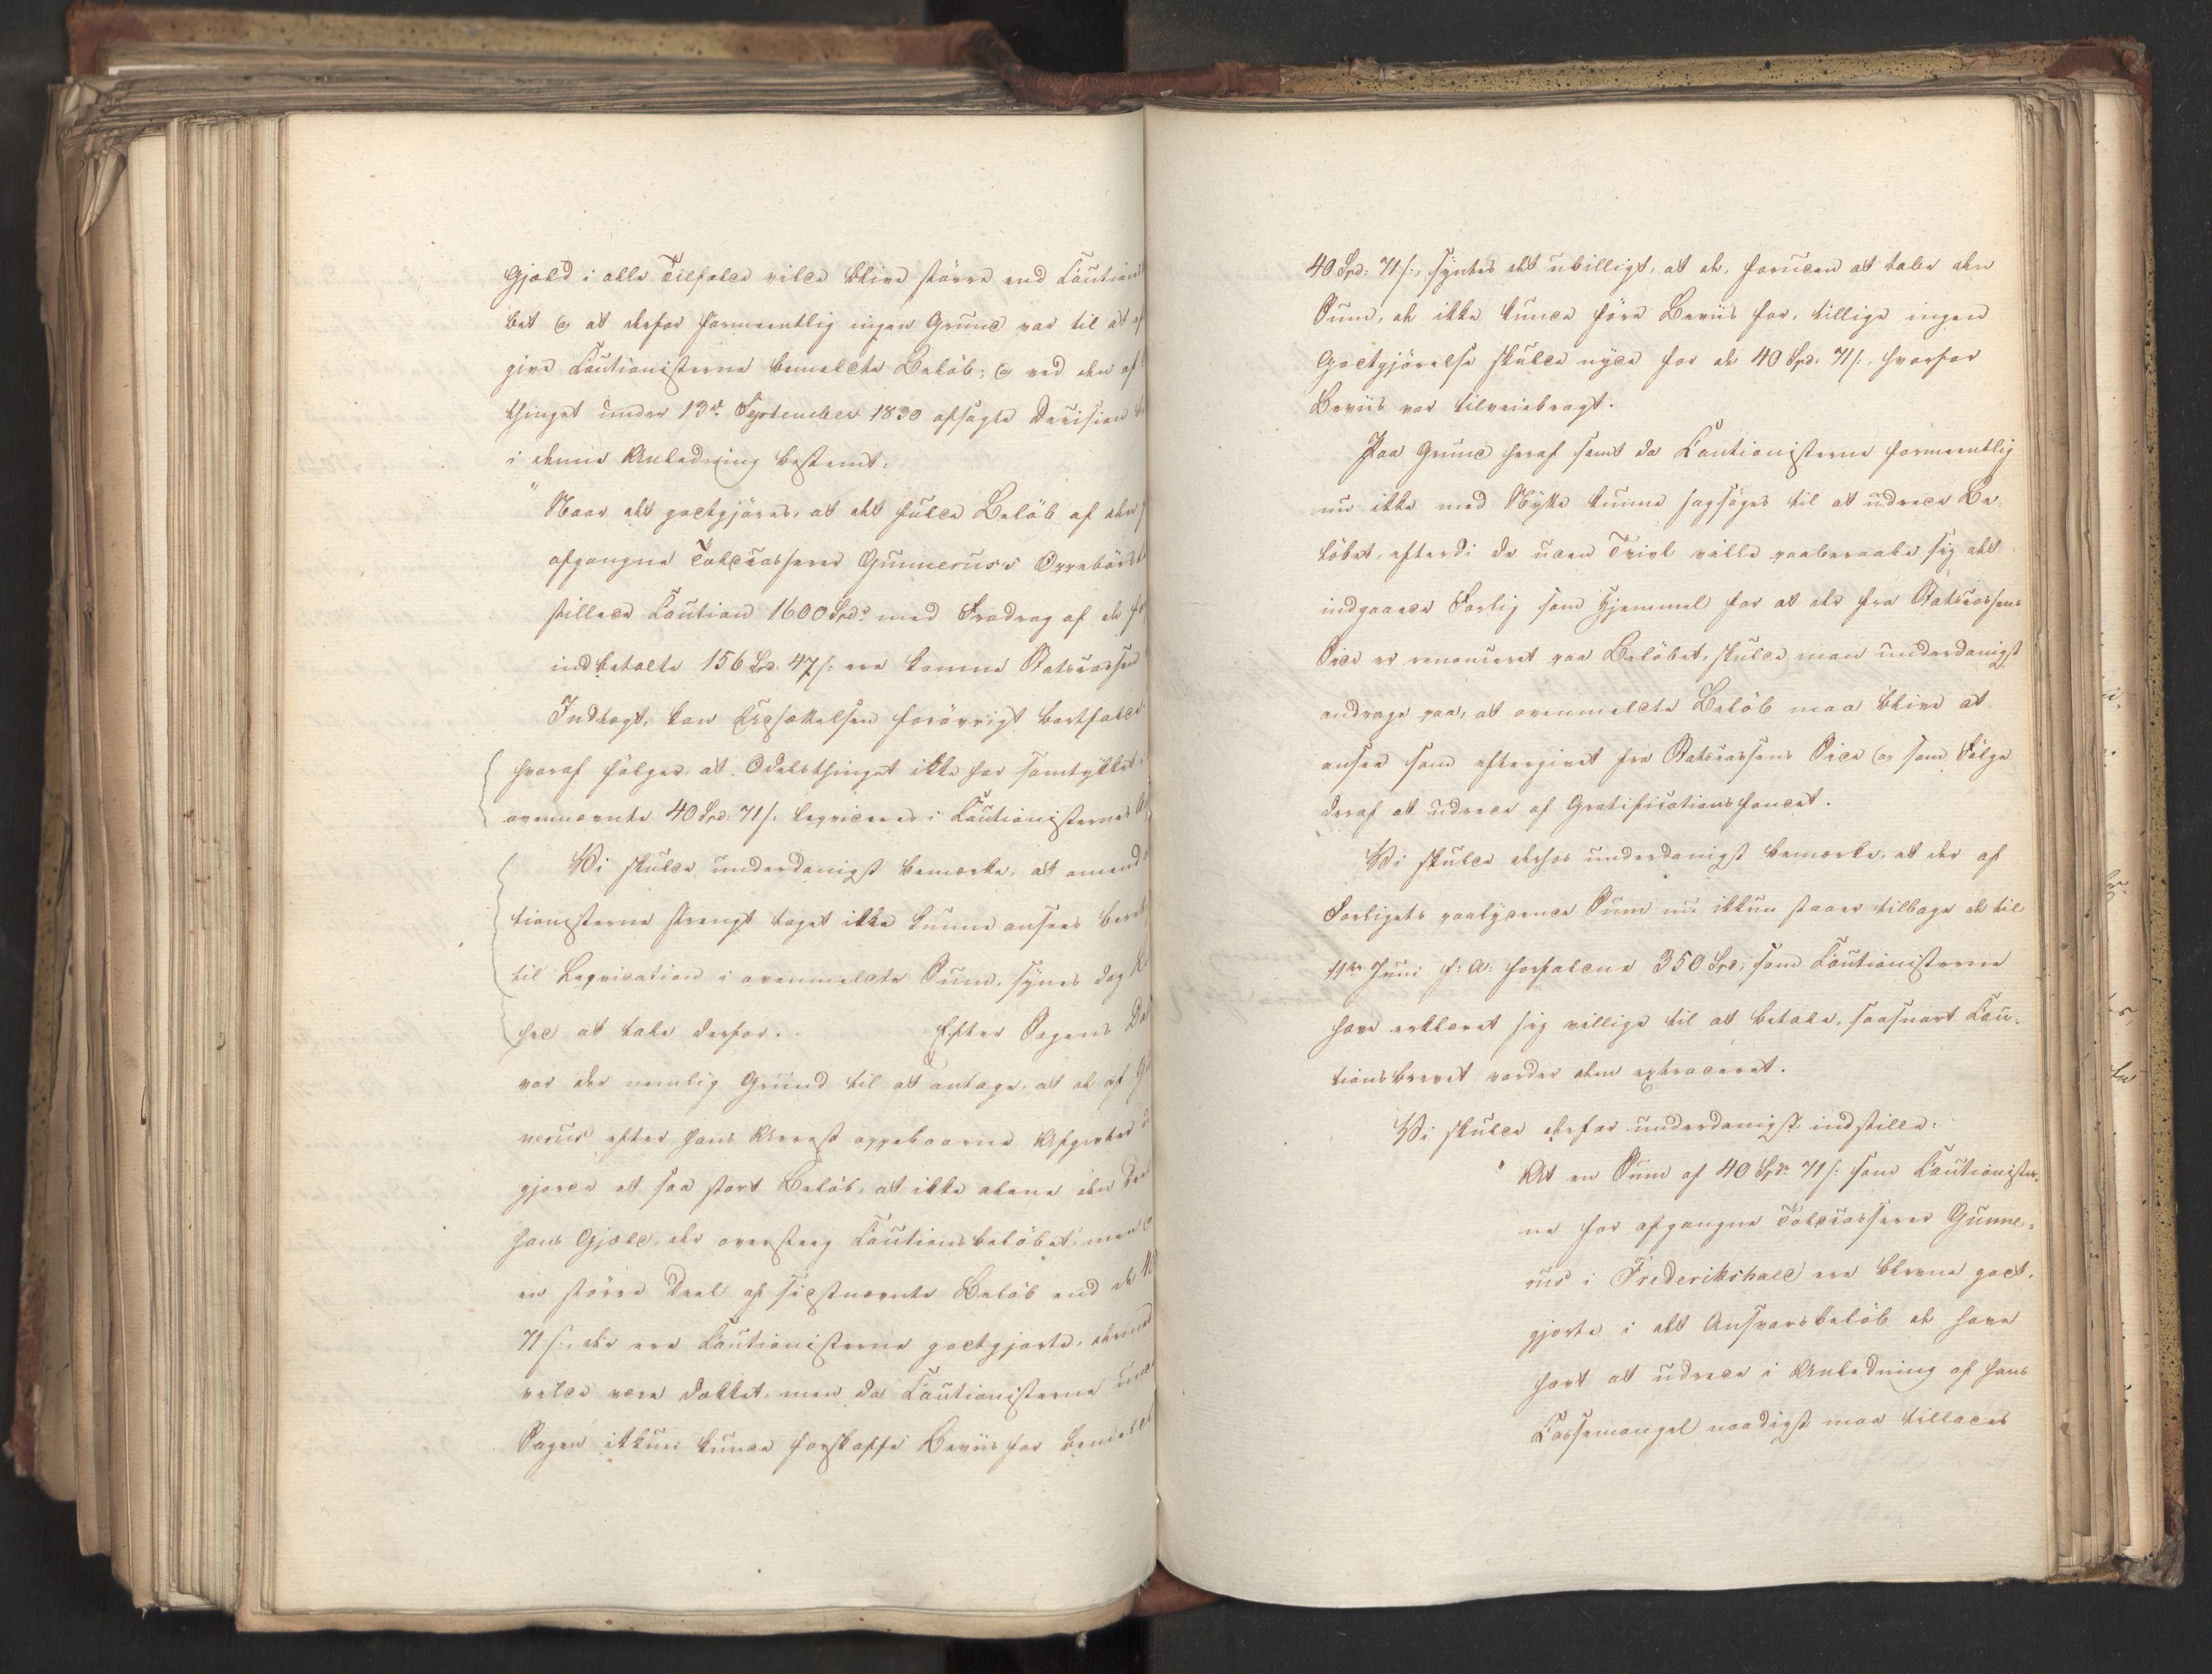 Gjæld i alle Tilfælde vilde blive større end Caution
bet og at derfor formeentlig ingen Grund var til at ef
give Cautionisterne bemeldte Beløb; og ved den af
thinget under 13de September 1830 afsagte Decision
i denne Anledning bestemt:
"Naar det godtgjøres, at det fulde Beløb af den
afgangne Toldcasserer Gunnerus's Oppebørsel
stillede Caution 1600 Spd. med Fradrag af de
indbetalte 156 Sp. 47 s: ere komne Statscassen
Indtægt, kan Udsættelsen forøvrigt bortfalde
hvoraf følger, at Odelsthinget ikke har samtykket
ovennævnte 40 Spd: 71 s: decideres i Cautionisternes
Vi skulde underdanigst bemærke, at omend
tionisterne strengt taget ikke kunne ansees beret
til Liqvidation i ovenmeldte Sum, synes dog
hed at tale derfor. Efter Sagens
var der nemlig Grund til at antage, at de af
nerus efter hans Arrest oppebaarne Afgivter
gjorde et saa stort Beløb, at ikke alene den Deel
hans Gjæld, der oversteeg Cautionsbeløbet, men
en større Deel af sidstnævnte Beløb end de 40
71 s:, der ere Cautionisterne godtgjorte, dermed
vilde være dækket, men da Cautionisterne
Sagen ikkun kunde forskaffe Beviis for bemeld
40 Spd: 71 s:, syntes det ubilligt, at de, foruden at tabe den
Sum, de ikke kunde føre Beviis for, tillige ingen
Godtgjørelse skulde nyde for de 40 Spd: 71 s:, hvorfor
Beviis var tilveiebragt.
Paa Grund heraf samt da Cautionisterne formeentlig
nu ikke med Nytte kunne sagsøges til at udrede Be-
løbet, efterdi de uden Tvivl ville paaberaabe sig det
indgaaede Forlig som Hjemmel for at der fra Statscassens
Side er renonceret paa Beløbet, skulde man underdanigst
andrage paa, at ovenmeldte Beløb maa blive at
ansee som eftergivet fra Statscassens Side og som Følge
deraf at udrede af Gratificationsfondet.
Vi skulde derhos underdanigst bemærke, at der af
Forligets paalydende Sum nu ikkun staaer tilbage de til
11te Juni f: A: forfaldne 350 Spd, som Cautionisterne
have erklæret sig villige til at betale, saasnart Cau-
tionsbrevet vorder dem extraderet.
Vi skulde derfor underdanigst indstille:
"At en Sum af 40 Spdr 71 s: som Cautionister-
ne for afgangne Toldcasserer Gunne-
rus i Frederikshald ere blevne godt-
gjorte i det Ansvarsbeløb de have
havt at udrede i Anledning af hans
Cassemangel naadigst maa tillades